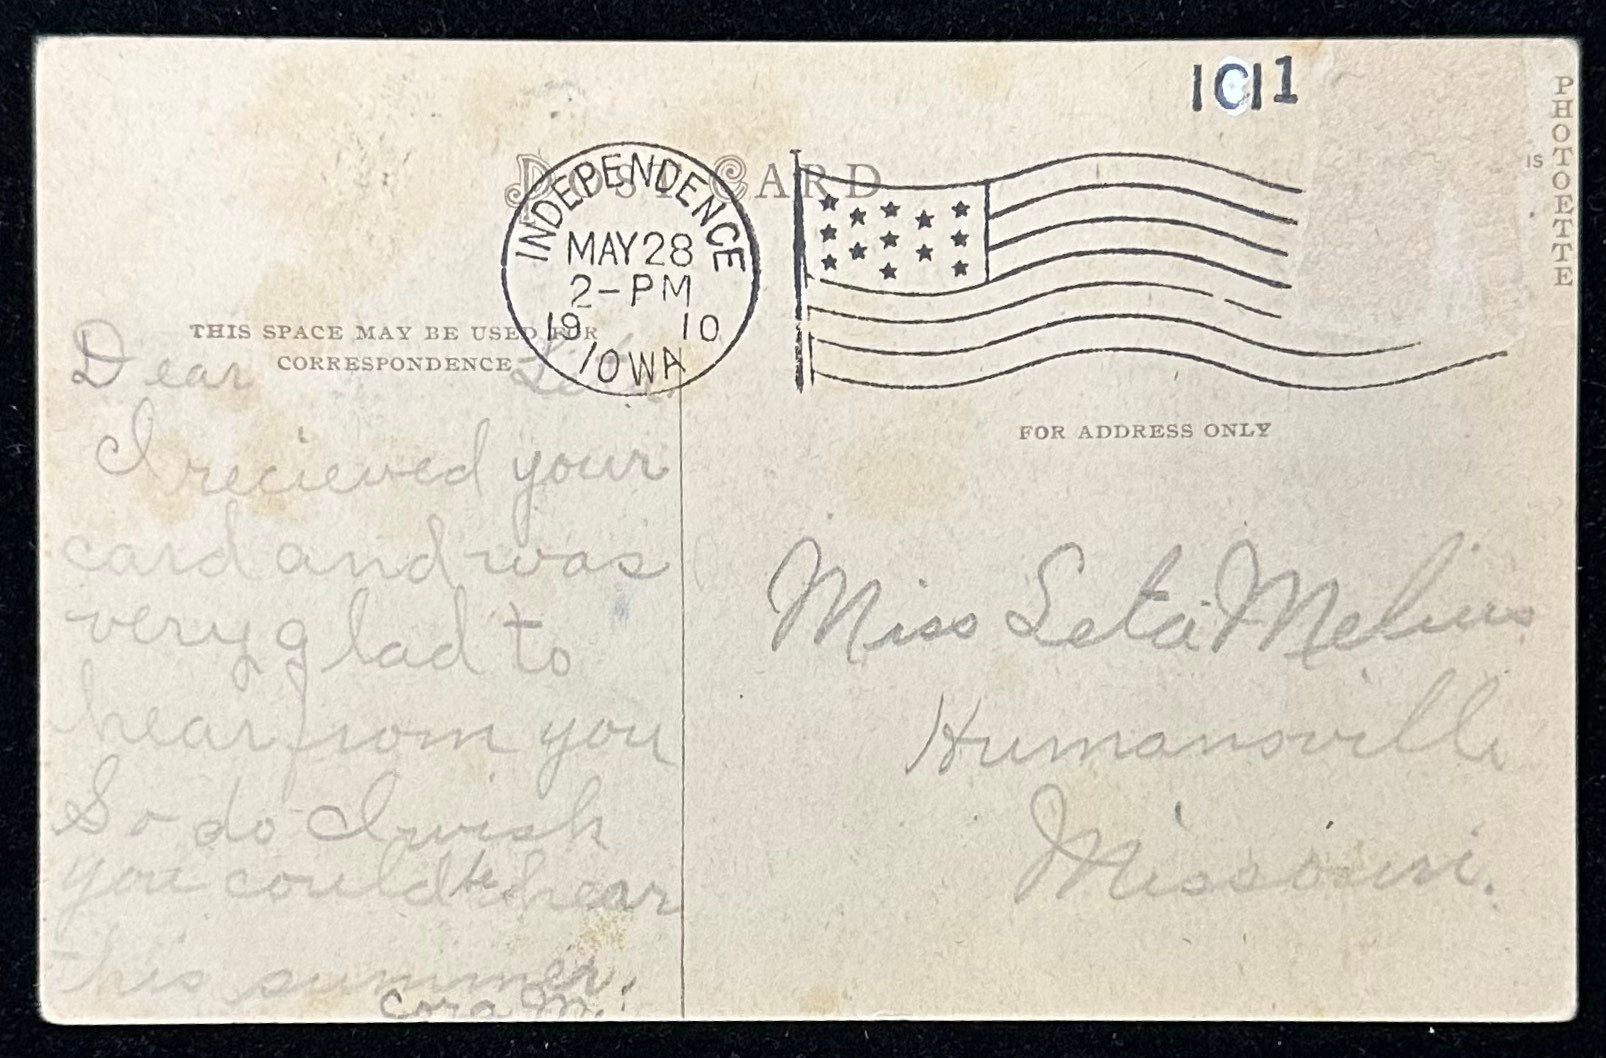 1C11
PHOTOETTE
IS
POST CARD
INDEPENDENCE
MAY 28
2-PM
19 10
IOWA
THIS SPACE MAY BE USED FOR
CORRESPONDENCE
FOR ADDRESS ONLY
Dear Leta
I recieved your
card and was
very glad to
hear from you
So do I wish
you could be hear
this summer.
Cora M.
Miss Leta Melius
Humansville
Missouri.